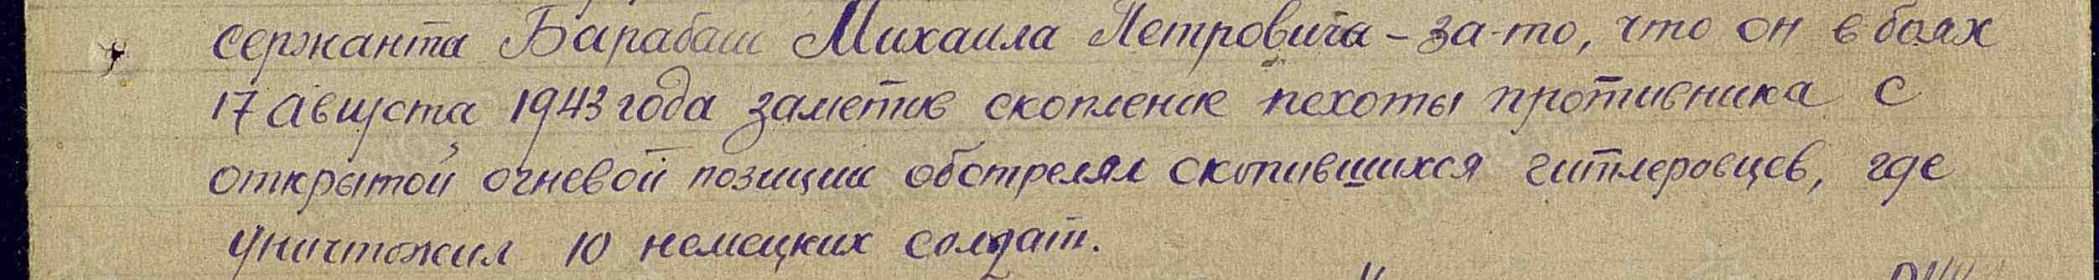 сержанта Барабаш Михаила Петровича – за-то, что он в боях
17 августа 1943 года заметив скопление пехоты противника с
открытой огневой позиции обстрелял скопившихся гитлеровцев, где
уничтожил 10 немецких солдат.